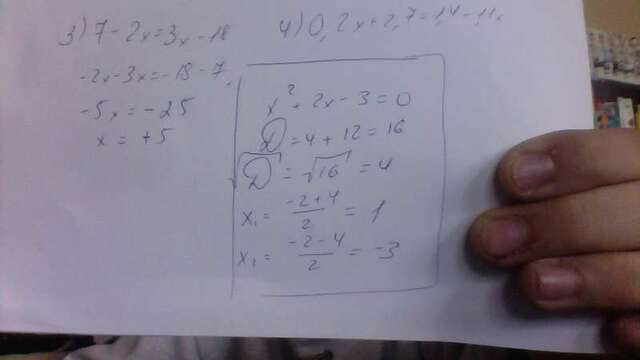 3) 7 - 2x = 3x - 18
-2x - 3x = -18 - 7
-5x = -25
x = +5
4) 0,2x + 2,7 = 1,4 - 1,1x
x² + 2x - 3 = 0
D = 4 + 12 = 16
√D = √16 = 4
x₁ = (-2+4)/2 = 1
x₂ = (-2-4)/2 = -3